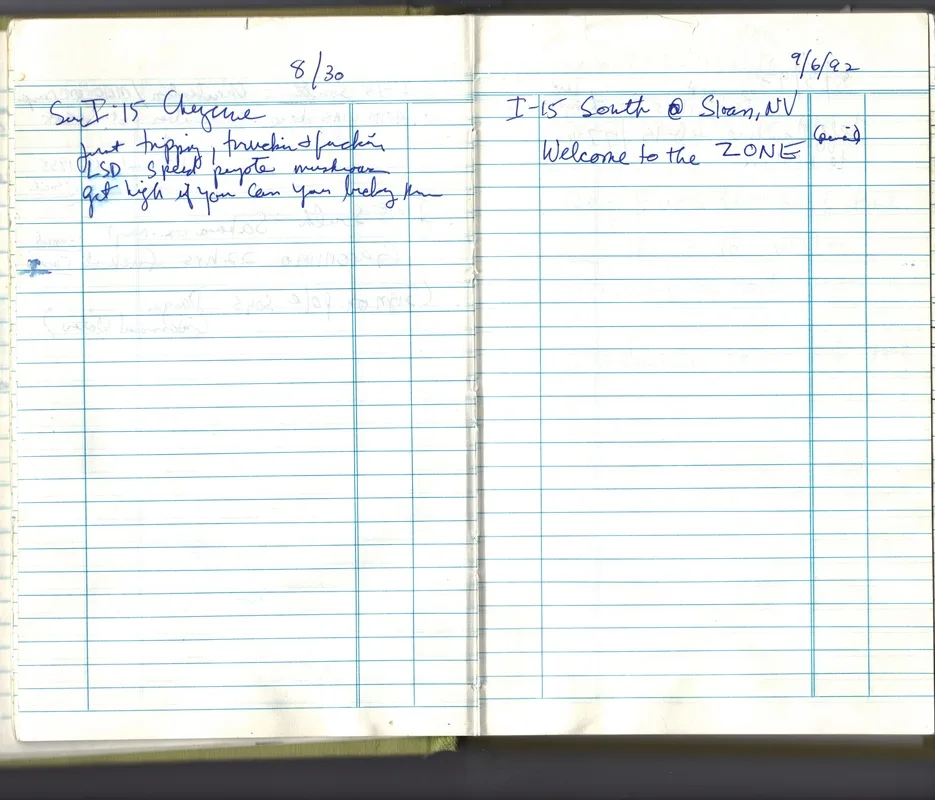 8/30
I-15 Cheyenne
Just trippin, truckin & fuckin
LSD Speed peyote mushroom
get high if you can you
9/6/92
I-15 South @ Sloan, NV
Welcome to the ZONE